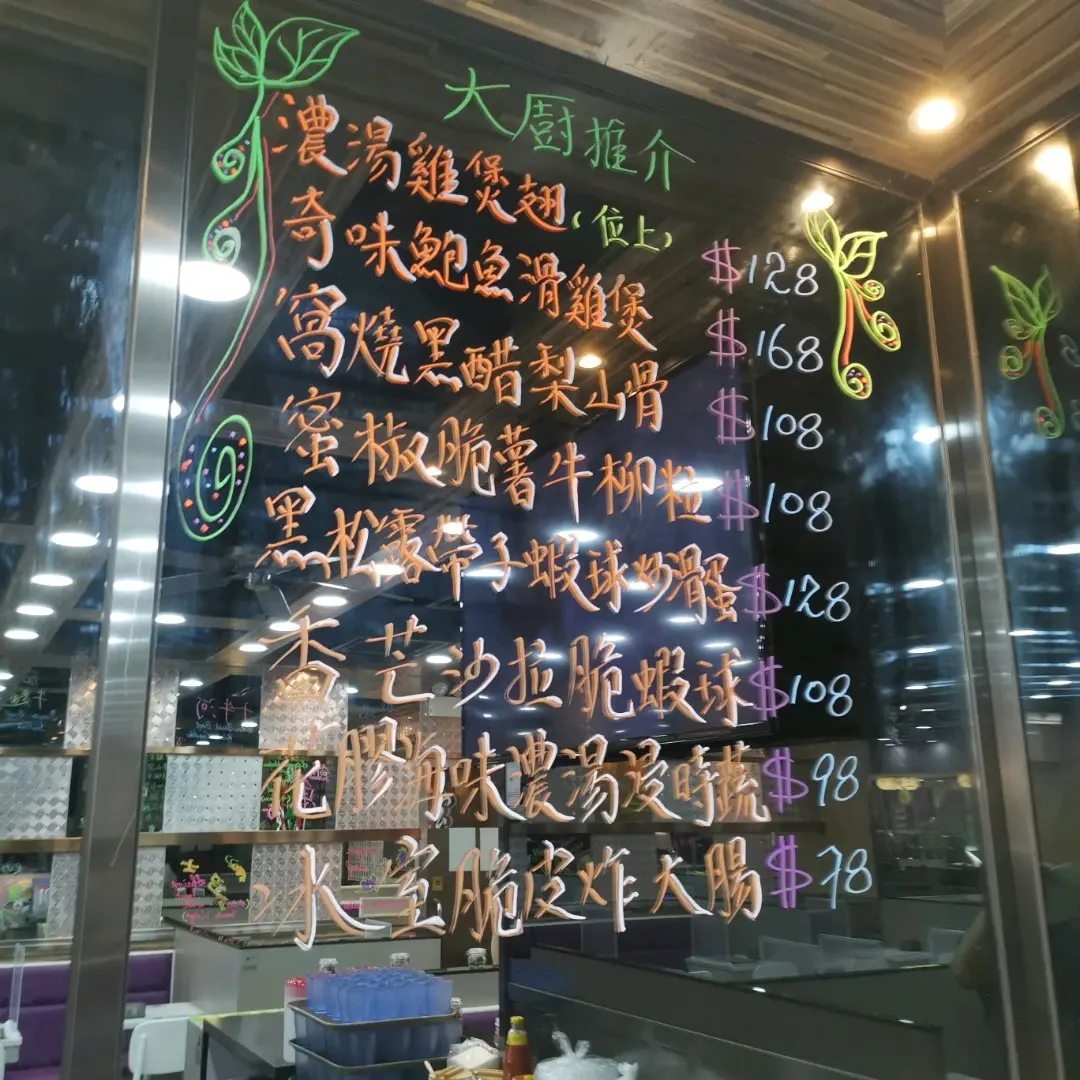 大廚推介
濃湯雞煲翅(位上) $128
奇味鮑魚滑雞煲 $168
窩燒黑醋梨山骨 $108
蜜椒脆薯牛柳粒 $108
黑松露帶子蝦球炒滑蛋 $128
香芒沙拉脆蝦球 $108
花膠海味濃湯浸時蔬 $98
冰室脆皮炸大腸 $78